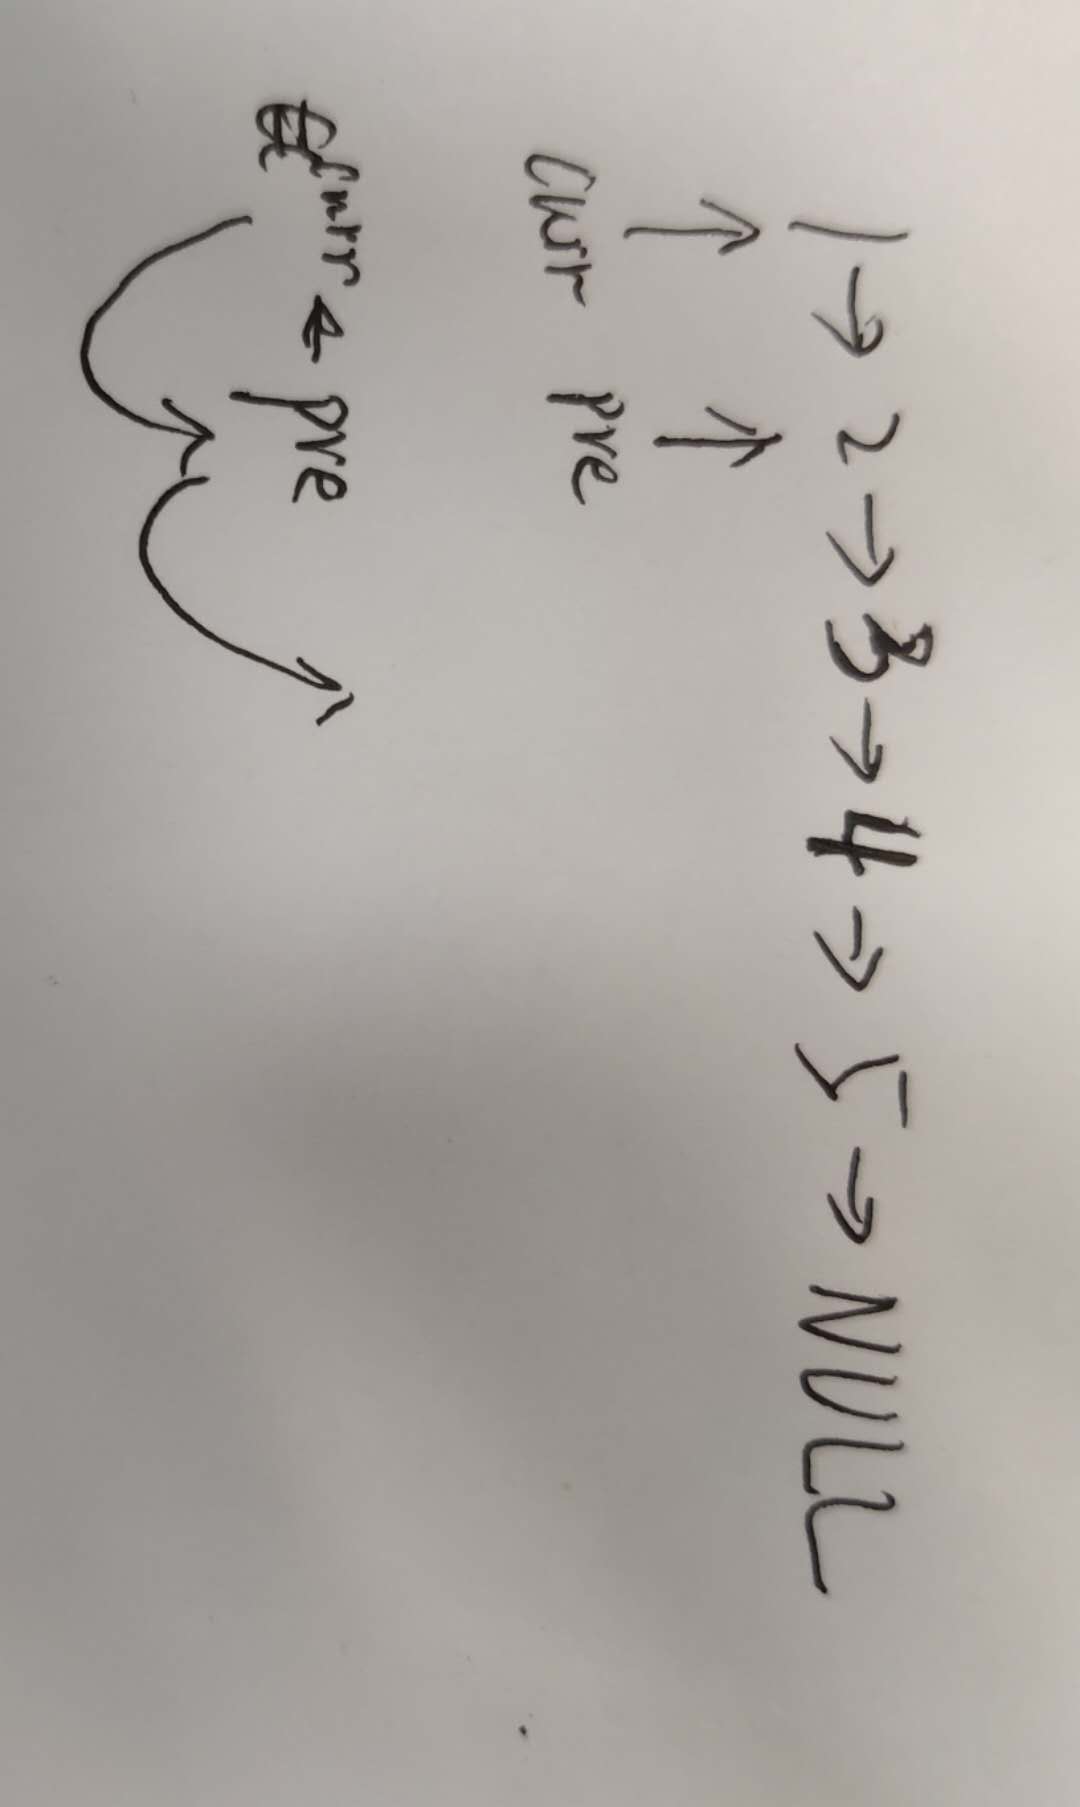 1 → 2 → 3 → 4 → 5 → NULL
↑ ↑
curr pre
curr ← pre